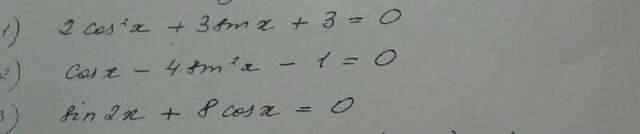 1) 2 cos²x + 3 sin x + 3 = 0
2) cos x - 4 sin²x - 1 = 0
3) sin 2x + 8 cos x = 0